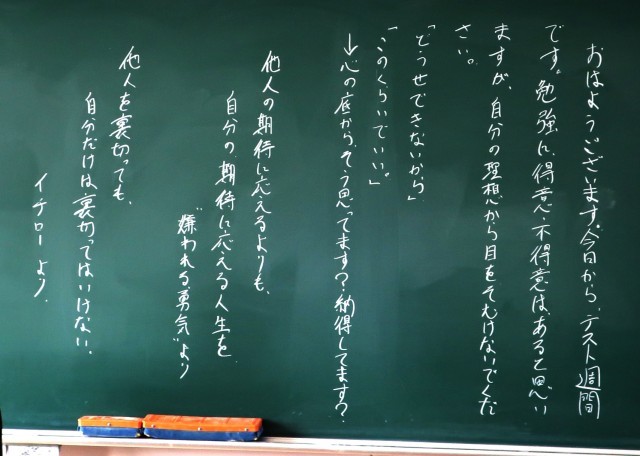 おはようございます。今日から、テスト週間
です。勉強に得意不得意は、あると思い
ますが、自分の理想から目をそむけないでくだ
さい。
「どうせできないから」
「このくらいでいい。」
→心の底から、そう思ってます？納得してます？
他人の期待に応えるよりも、
自分の期待に応える人生を
"嫌われる勇気"より
他人を裏切っても、
自分だけは裏切ってはいけない。
イチローより、